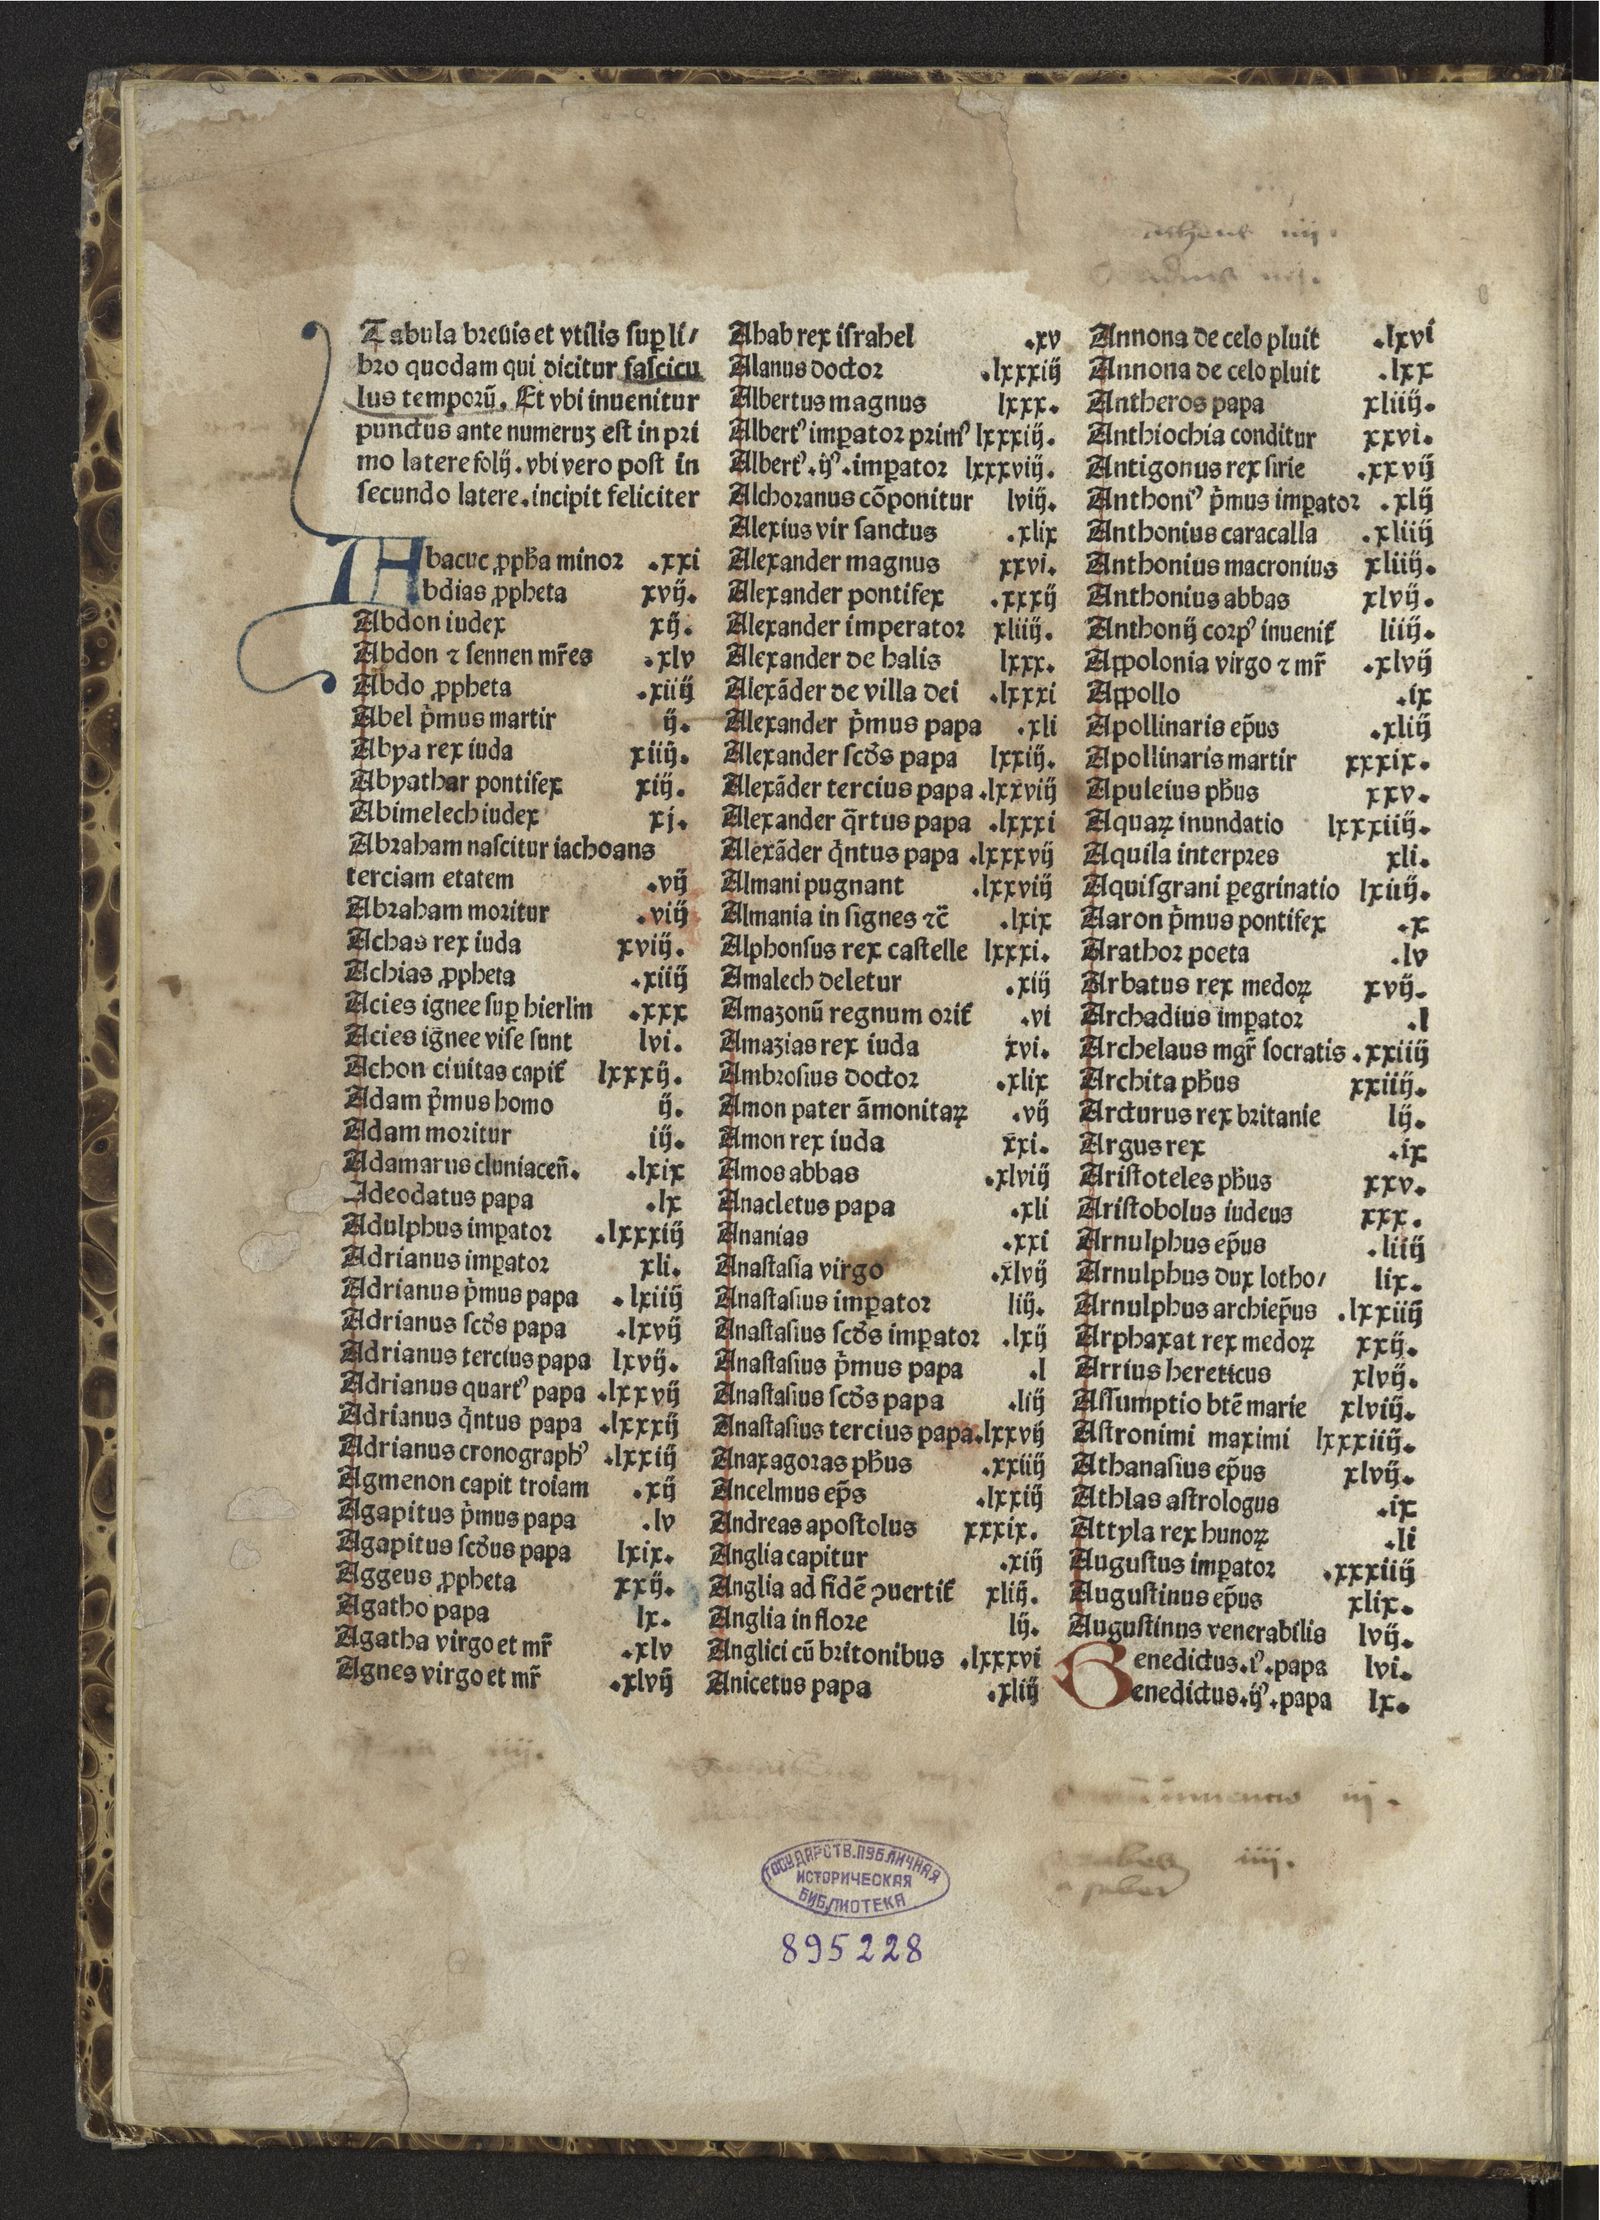 Tabula breuis et vtilis sup̱ li/
bro quodam qui dicitur fascicu
lus temporū. Et vbi inuenitur
punctus ante numeruʒ est in pri
mo latere folij. vbi vero post in
secundo latere. incipit feliciter
Abacuc ꝓpħa minor .xxi
Abdias ꝓpheta xvij.
Abdon iudex xij.
Abdon ⁊ sennen mr̄es .xlv
Abdo ꝓpheta .xiiij
Abel p̄mus martir ij.
Abya rex iuda xiiij.
Abyathar pontifex xiij.
Abimelech iudex xj.
Abraham nascitur iachoans
terciam etatem .vij
Abraham moritur .viij
Achas rex iuda xviij.
Achias ꝓpheta .xiiij
Acies ignee sup̱ hierlm̄ .xxx
Acies ignee vise sunt lvi.
Achon ciuitas capit᷑ lxxxij.
Adam p̄mus homo ij.
Adam moritur iij.
Adamarus cluniaceñ. .lxix
Adeodatus papa .lx
Adulphus imꝑator .lxxxiij
Adrianus imꝑator xli.
Adrianus p̄mus papa .lxiiij
Adrianus scd̄s papa .lxvij
Adrianus tercius papa lxvij.
Adrianus quartꝰ papa .lxxvij
Adrianus q̄ntus papa .lxxxij
Adrianus cronographꝰ .lxxiij
Agmenon capit troiam .xij
Agapitus p̄mus papa .lv
Agapitus scd̄us papa lxix.
Aggeus ꝓpheta xxij.
Agatho papa lx.
Agatha virgo et mr̄ .xlv
Agnes virgo et mr̄ .xlvij
Ahab rex israhel .xv
Alanus doctor .lxxxiij
Albertus magnus lxxx.
Albertꝰ imꝑator primꝰ lxxxiij.
Albertꝰ .ijꝰ. imꝑator lxxxviij.
Alchoranus cōponitur lviij.
Alexius vir sanctus .xlix
Alexander magnus xxvi.
Alexander pontifex .xxxij
Alexander imperator xliiij.
Alexander de halis lxxx.
Alexāder de villa dei .lxxxi
Alexander p̄mus papa .xli
Alexander scd̄s papa lxxiij.
Alexāder tercius papa .lxxviij
Alexander q̄rtus papa .lxxxi
Alexāder q̄ntus papa .lxxxvij
Almani pugnant .lxxviij
Almania in signes ⁊c̄ .lxix
Alphonsus rex castelle lxxxi.
Amalech deletur .xiij
Amazonū regnum orit᷑ .vi
Amazias rex iuda xvi.
Ambrosius doctor .xlix
Amon pater āmonitaꝝ .vij
Amon rex iuda xxi.
Amos abbas .xlviij
Anacletus papa .xli
Ananias .xxi
Anastasia virgo .xlvij
Anastasius imꝑator liij.
Anastasius scd̄s imꝑator .lxij
Anastasius p̄mus papa .l
Anastasius scd̄s papa .liij
Anastasius tercius papa .lxxvij
Anaxagoras pħus .xxiiij
Ancelmus ep̄s .lxxiij
Andreas apostolus xxxix.
Anglia capitur .xiij
Anglia ad fidē ꝯuertit᷑ xliij.
Anglia in flore lij.
Anglici cū britonibus .lxxxvi
Anicetus papa .xliij
Annona de celo pluit .lxvi
Annona de celo pluit .lxx
Antheros papa xliiij.
Anthiochia conditur xxvi.
Antigonus rex sirie .xxvij
Anthoniꝰ p̄mus imꝑator .xlij
Anthonius caracalla .xliiij
Anthonius macronius xliiij.
Anthonius abbas xlvij.
Anthonij corpꝰ inuenit᷑ liiij.
Appolonia virgo ⁊ mr̄ .xlvij
Appollo .ix
Apollinaris ep̄us .xliij
Apollinaris martir xxxix.
Apuleius pħus xxv.
Aquaꝝ inundatio lxxxiiij.
Aquila interpres xli.
Aquisgrani ꝑegrinatio lxiiij.
Aaron p̄mus pontifex .x
Arathor poeta .lv
Arbatus rex medoꝝ xvij.
Archadius imꝑator .l
Archelaus mgr̄ socratis .xxiiij
Archita pħus xxiiij.
Arcturus rex britanie lij.
Argus rex .ix
Aristoteles pħus xxv.
Aristobolus iudeus xxx.
Arnulphus ep̄us .liiij
Arnulphus dux lotho/ lix.
Arnulphus archiep̄us .lxxiiij
Arphaxat rex medoꝝ xxij.
Arrius hereticus xlvij.
Assumptio btē marie xlviij.
Astronimi maximi lxxxiiij.
Athanasius ep̄us xlvij.
Athlas astrologus .ix
Attyla rex hunoꝝ .li
Augustus imꝑator .xxxiiij
Augustinus ep̄us xlix.
Augustinus venerabilis lvij.
Benedictus .iꝰ. papa lvi.
Benedictus .ijꝰ. papa lx.
ГОСУДАРСТВ. ПУБЛИЧНАЯ
ИСТОРИЧЕСКАЯ
БИБЛИОТЕКА
895228